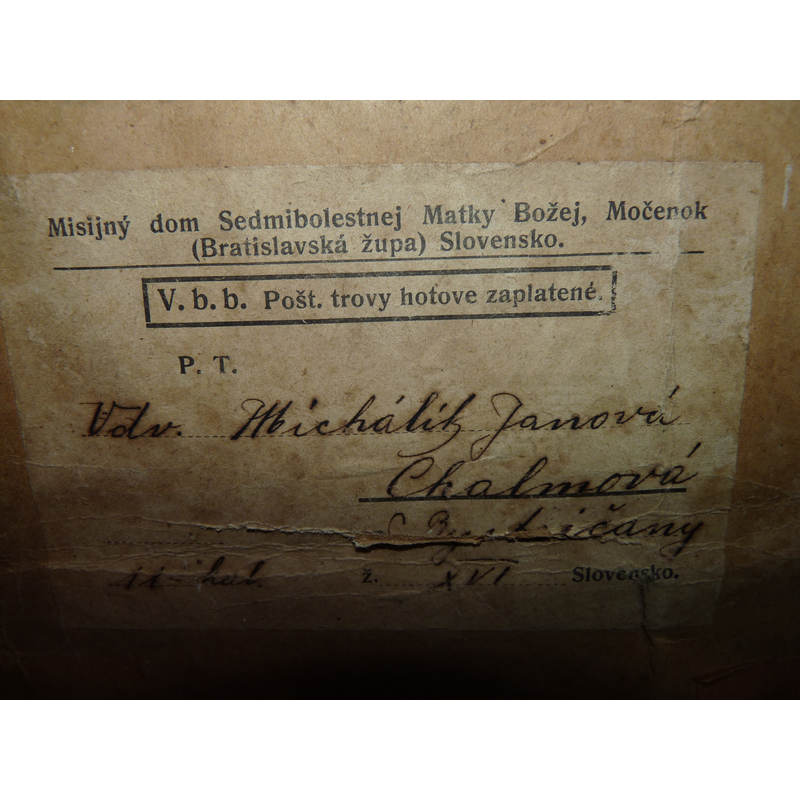 Misijný dom Sedmibolestnej Matky Božej, Močenok
(Bratislavská župa) Slovensko.
V. b. b. Pošt. trovy hotove zaplatené.
P. T.
Vdv. Michálik Janová
Chalmová
ž. XVI Slovensko.